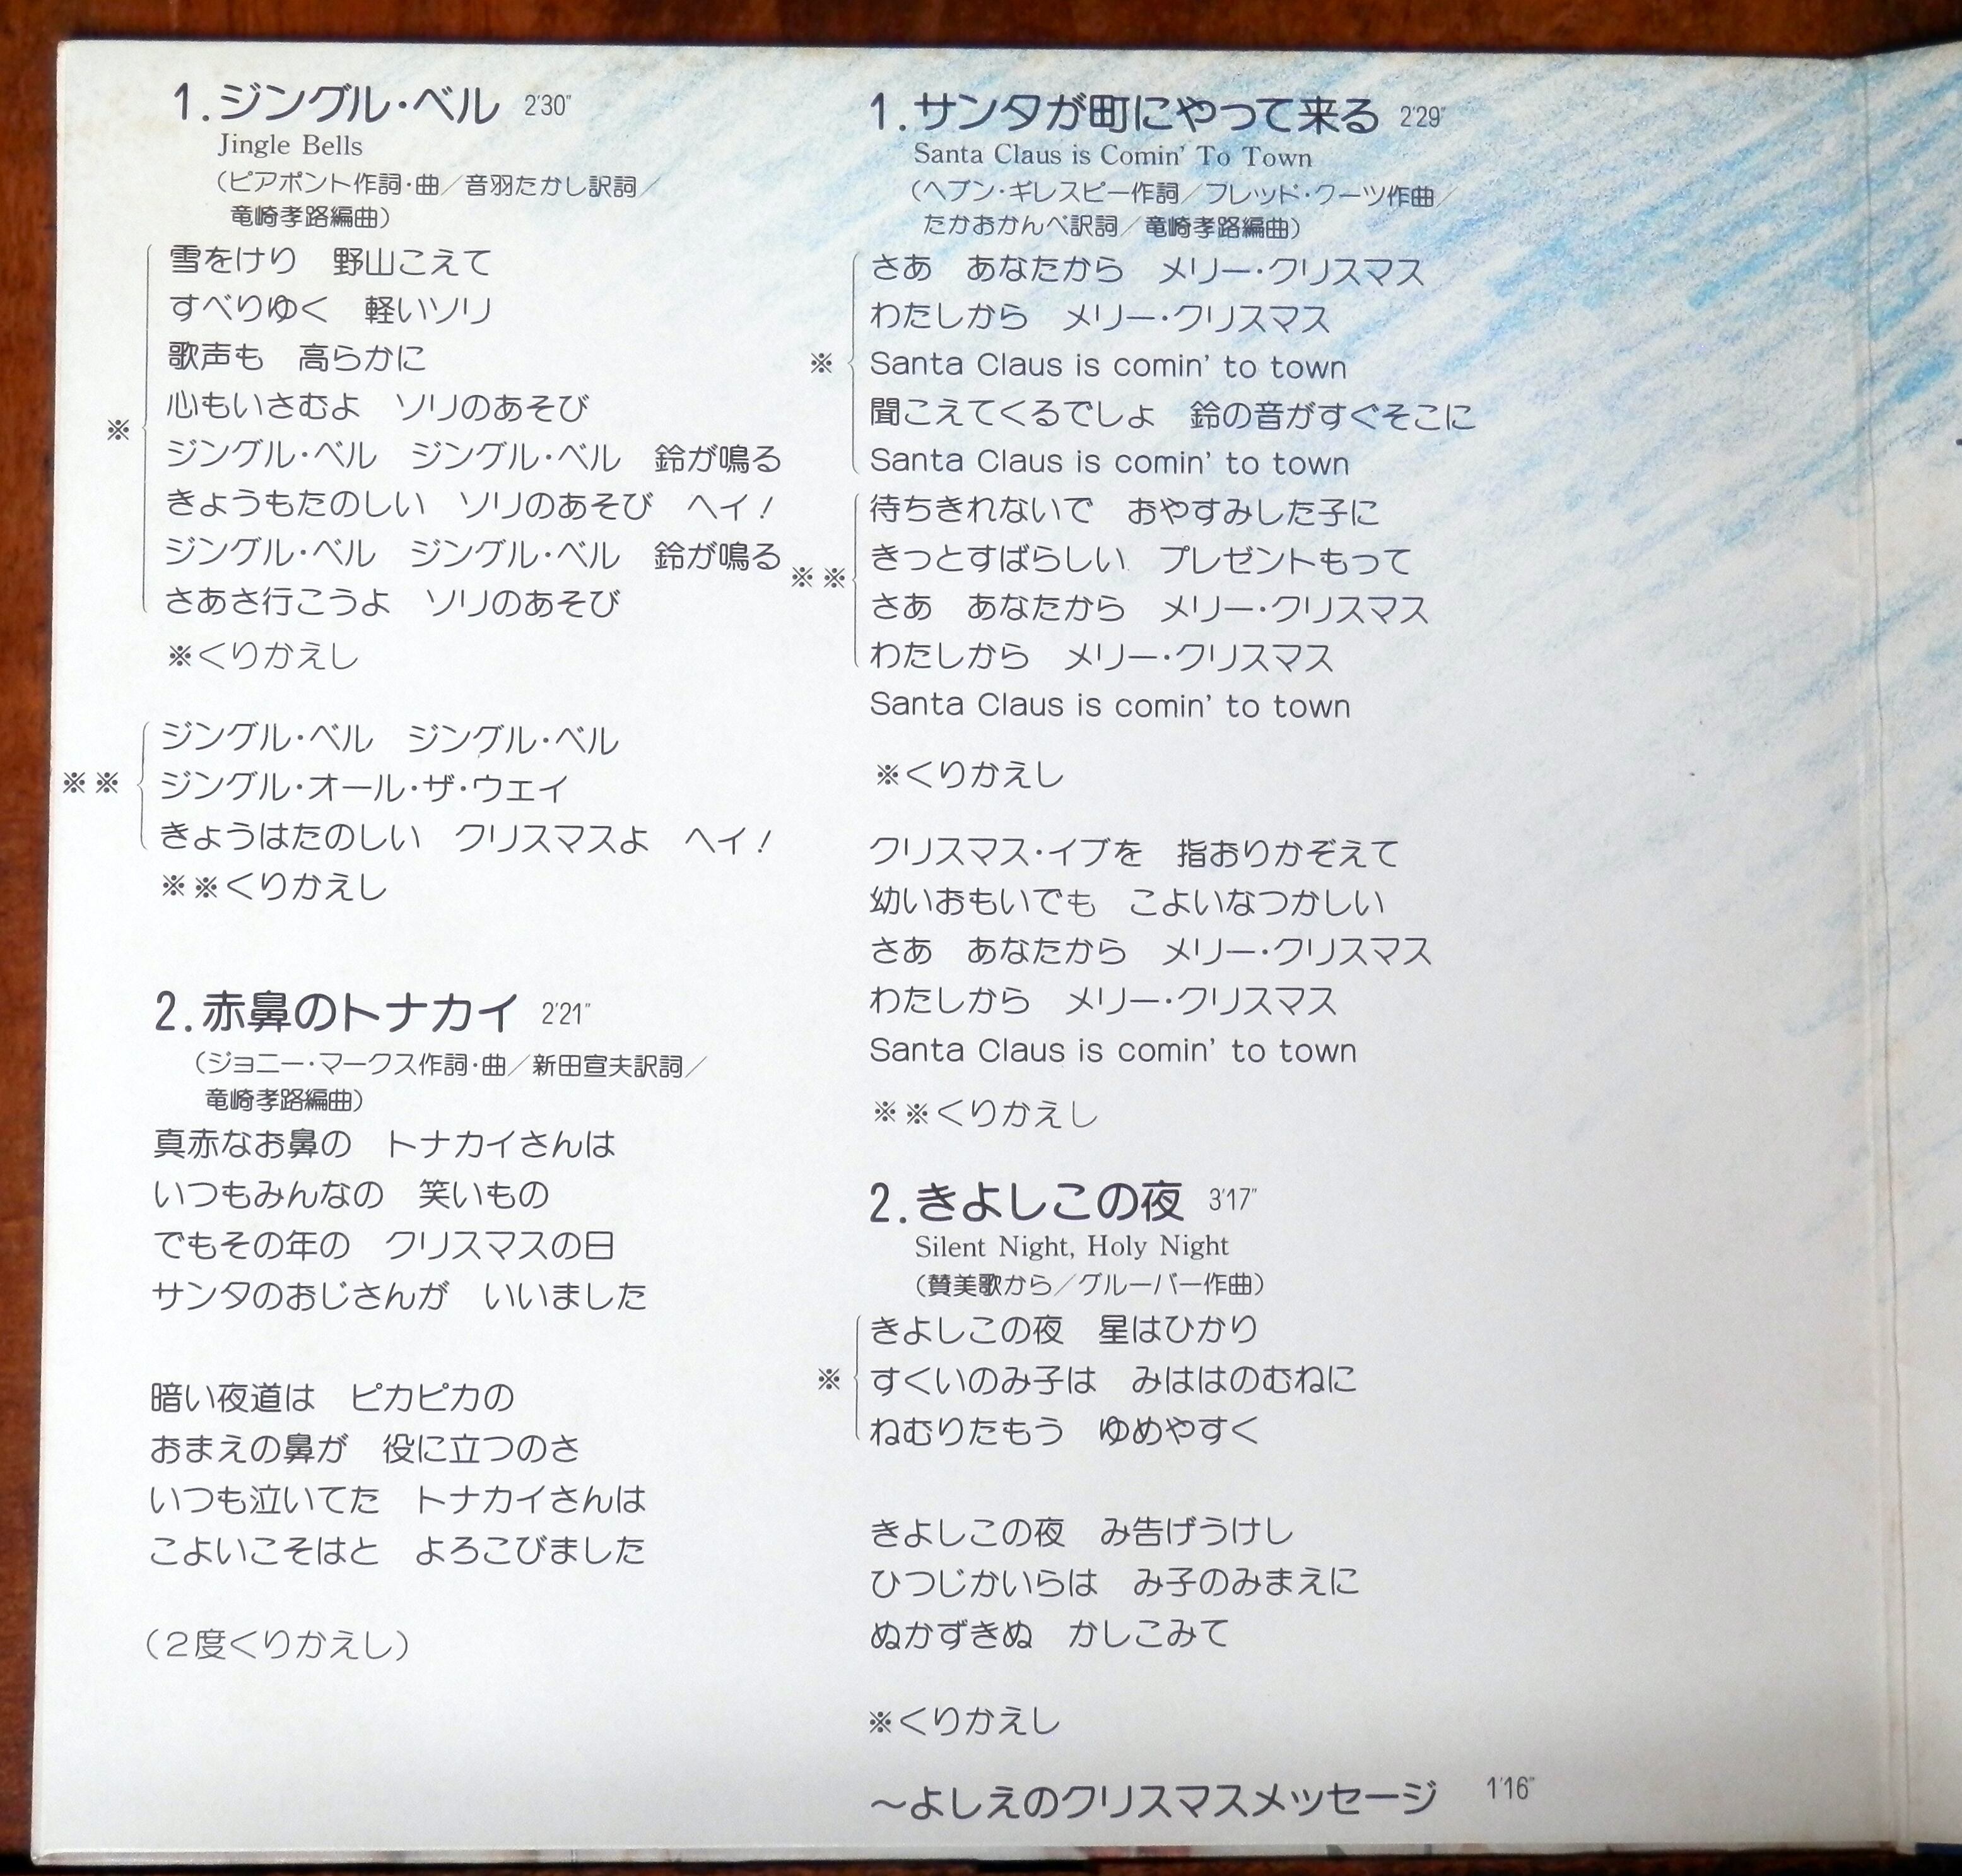 1.ジングル・ベル 2'30"
Jingle Bells
(ピアポント作詞・曲／音羽たかし訳詞／
竜崎孝路編曲)
雪をけり　野山こえて
すべりゆく　軽いソリ
歌声も　高らかに
心もいさむよ　ソリのあそび
※
ジングル・ベル　ジングル・ベル　鈴が鳴る
きょうもたのしい　ソリのあそび　ヘイ！
ジングル・ベル　ジングル・ベル　鈴が鳴る
さあさ行こうよ　ソリのあそび
※くりかえし
ジングル・ベル　ジングル・ベル
※※ ジングル・オール・ザ・ウェイ
きょうはたのしい　クリスマスよ　ヘイ！
※※くりかえし
2.赤鼻のトナカイ 2'21"
(ジョニー・マークス作詞・曲／新田宣夫訳詞／
竜崎孝路編曲)
真赤なお鼻の　トナカイさんは
いつもみんなの　笑いもの
でもその年の　クリスマスの日
サンタのおじさんが　いいました
暗い夜道は　ピカピカの
おまえの鼻が　役に立つのさ
いつも泣いてた　トナカイさんは
こよいこそはと　よろこびました
(2度くりかえし)
1.サンタが町にやって来る 2'29"
Santa Claus is Comin' To Town
(ヘブン・ギレスピー作詞／フレッド・クーツ作曲／
たかおかんべ訳詞／竜崎孝路編曲)
さあ　あなたから　メリー・クリスマス
わたしから　メリー・クリスマス
※ Santa Claus is comin' to town
聞こえてくるでしょ　鈴の音がすぐそこに
Santa Claus is comin' to town
待ちきれないで　おやすみした子に
きっとすばらしい　プレゼントもって
※※
さあ　あなたから　メリー・クリスマス
わたしから　メリー・クリスマス
Santa Claus is comin' to town
※くりかえし
クリスマス・イブを　指おりかぞえて
幼いおもいでも　こよいなつかしい
さあ　あなたから　メリー・クリスマス
わたしから　メリー・クリスマス
Santa Claus is comin' to town
※※くりかえし
2.きよしこの夜 3'17"
Silent Night, Holy Night
(賛美歌から／グルーバー作曲)
きよしこの夜　星はひかり
※ すくいのみ子は　みははのむねに
ねむりたもう　ゆめやすく
きよしこの夜　み告げうけし
ひつじかいらは　み子のみまえに
ぬかずきぬ　かしこみて
※くりかえし
～よしえのクリスマスメッセージ 1'16"